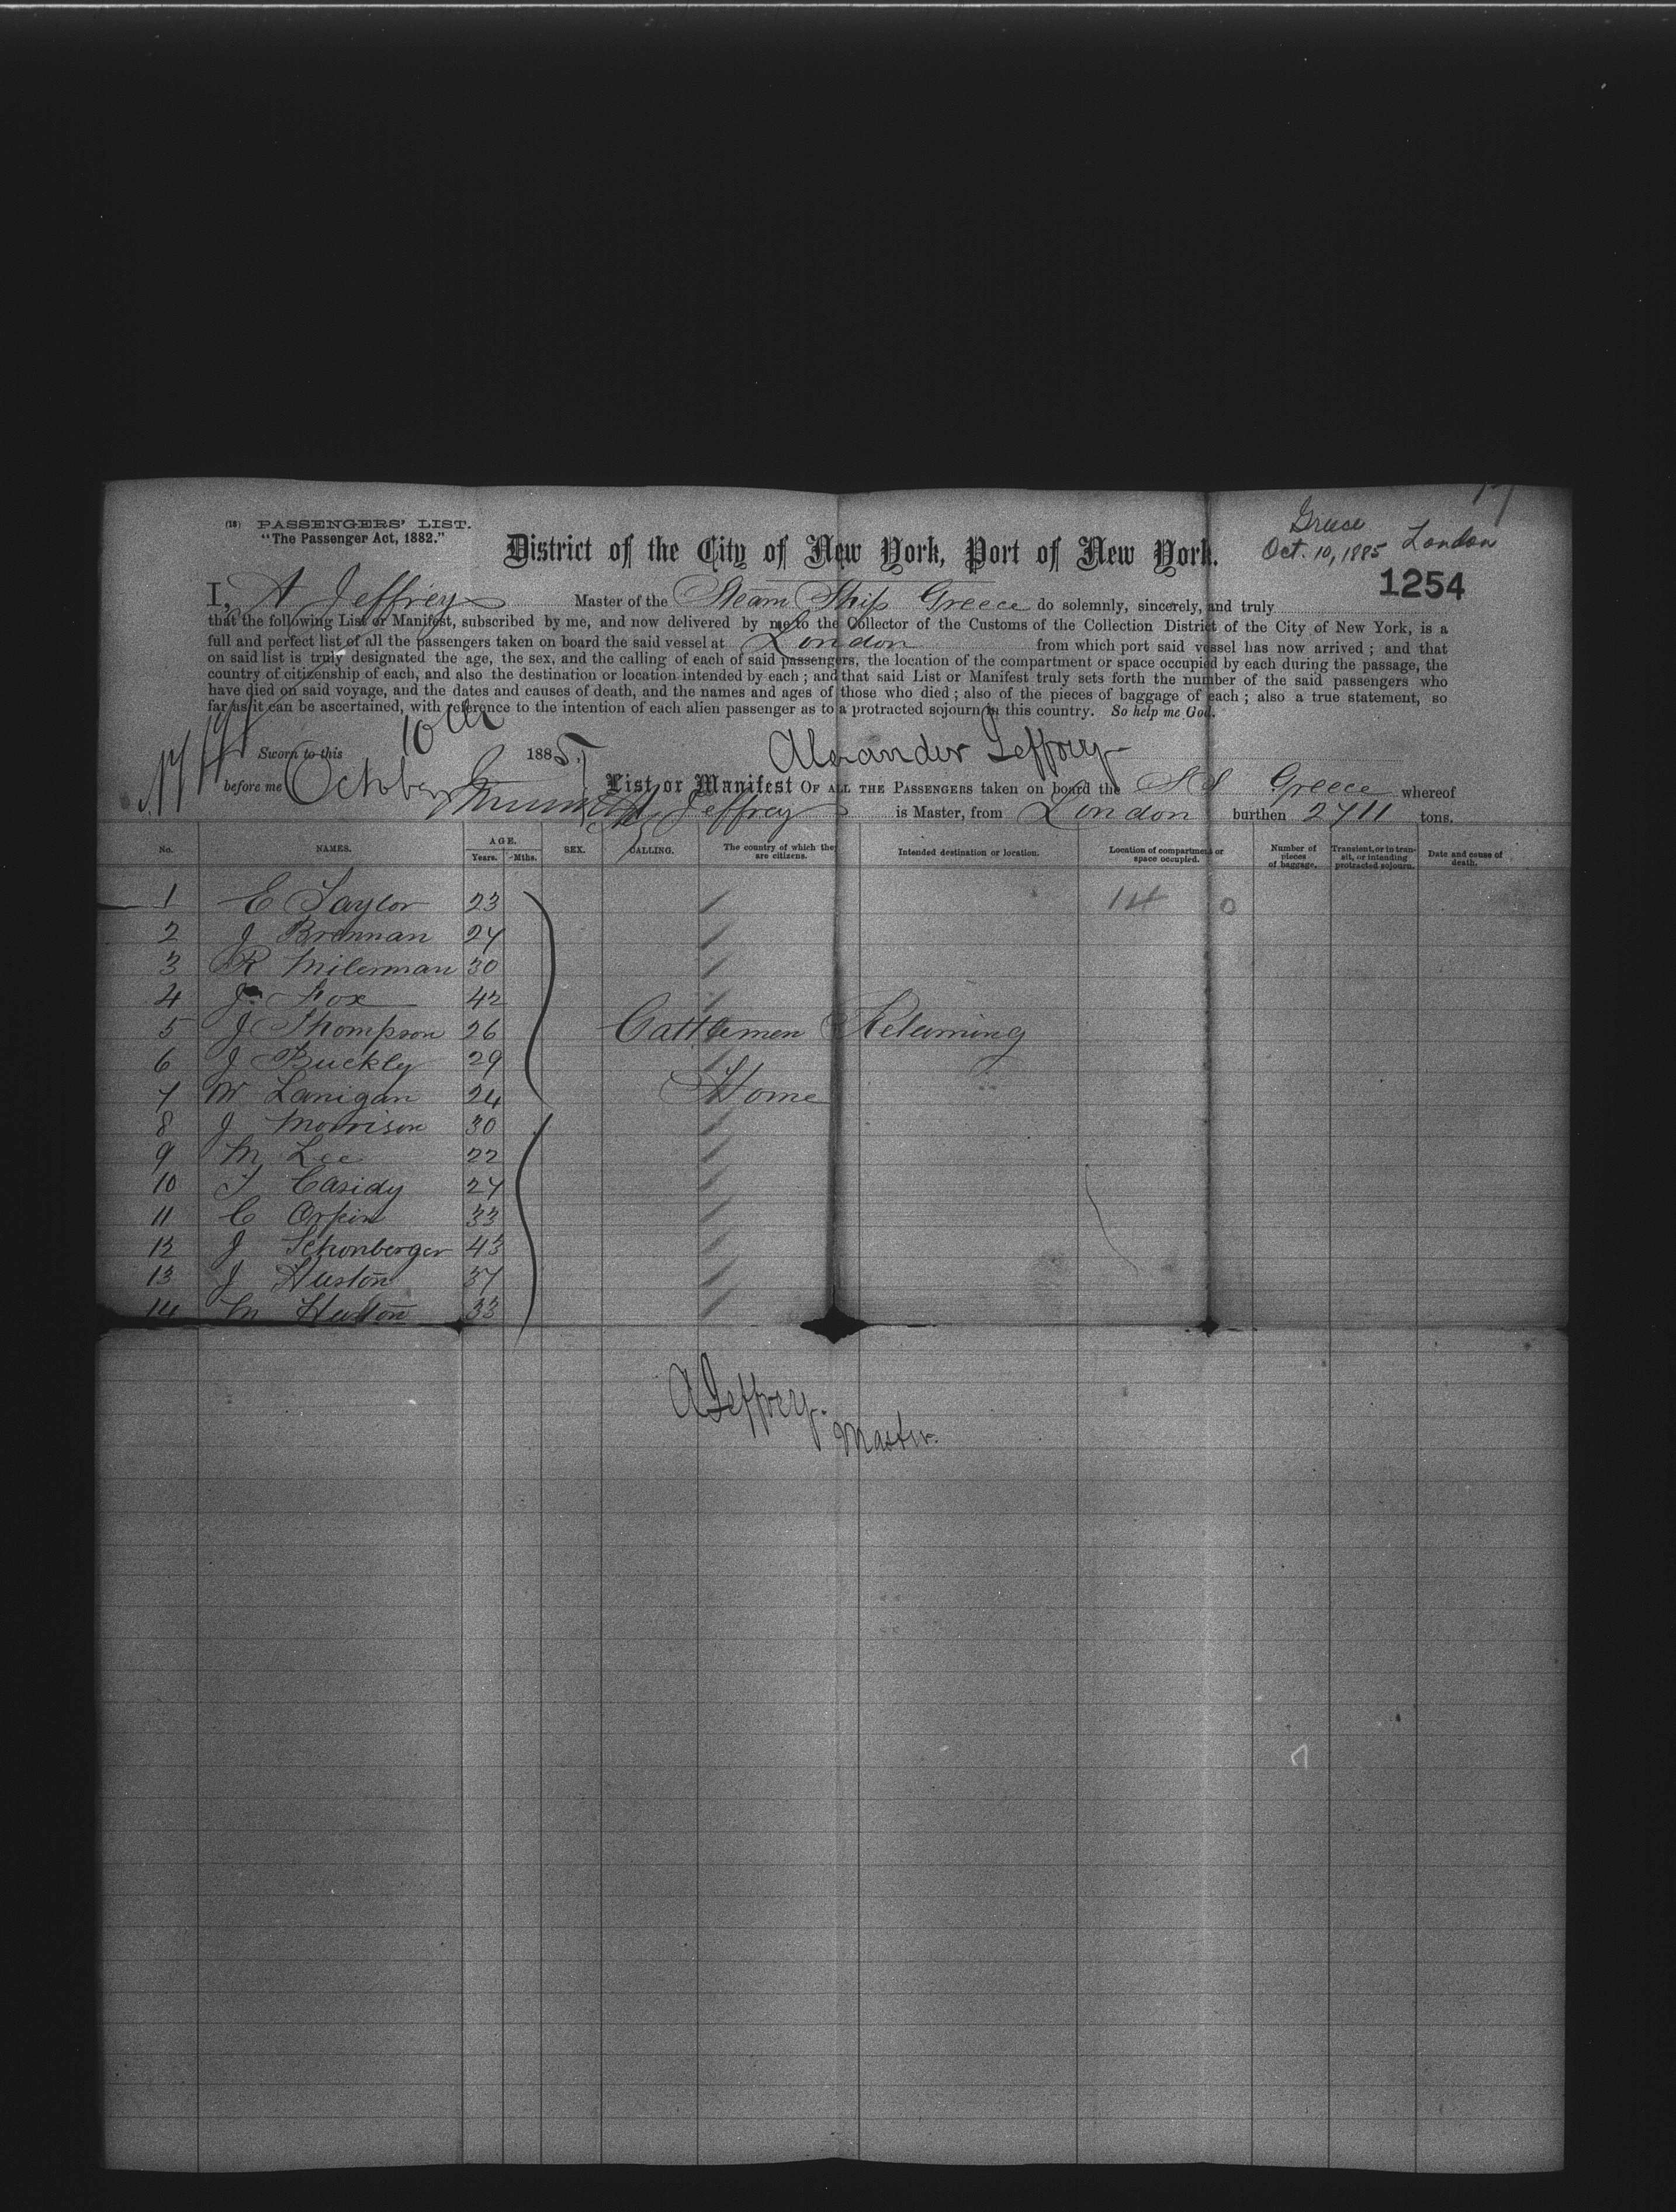 (18) PASSENGERS' LIST.
"The Passenger Act, 1882."
District of the City of New York, Port of New York.
Greece
Oct. 10, 1885 London
1254
I, A Jeffrey Master of the Steam Ship Greece do solemnly, sincerely, and truly
that the following List or Manifest, subscribed by me, and now delivered by me to the Collector of the Customs of the Collection District of the City of New York, is a
full and perfect list of all the passengers taken on board the said vessel at London from which port said vessel has now arrived; and that
on said list is truly designated the age, the sex, and the calling of each of said passengers, the location of the compartment or space occupied by each during the passage, the
country of citizenship of each, and also the destination or location intended by each; and that said List or Manifest truly sets forth the number of the said passengers who
have died on said voyage, and the dates and causes of death, and the names and ages of those who died; also of the pieces of baggage of each; also a true statement, so
far as it can be ascertained, with reference to the intention of each alien passenger as to a protracted sojourn in this country. So help me God.
Sworn to this 10th 1885. Alexander Jeffrey
before me October
List or Manifest OF ALL THE PASSENGERS taken on board the SS Greece whereof
A Jeffrey is Master, from London burthen 2711 tons.
No. NAMES. AGE. Years. Mths. SEX. CALLING. The country of which they are citizens. Intended destination or location. Location of compartment or space occupied. Number of pieces of baggage. Transient, or in transit, or intending protracted sojourn. Date and cause of death.
1 E Taylor 23 14 0
2 J Brennan 24
3 R Milerman 30
4 J Fox 42
5 J Thompson 26 Cattlemen Returning
6 J Buckly 29
7 W Lanigan 24 Home
8 J Morrison 30
9 M Lee 22
10 T Casidy 27
11 C Orpin 33
12 J Schonberger 43
13 J Huston 37
14 M Huston 33
A Jeffrey.
Master.